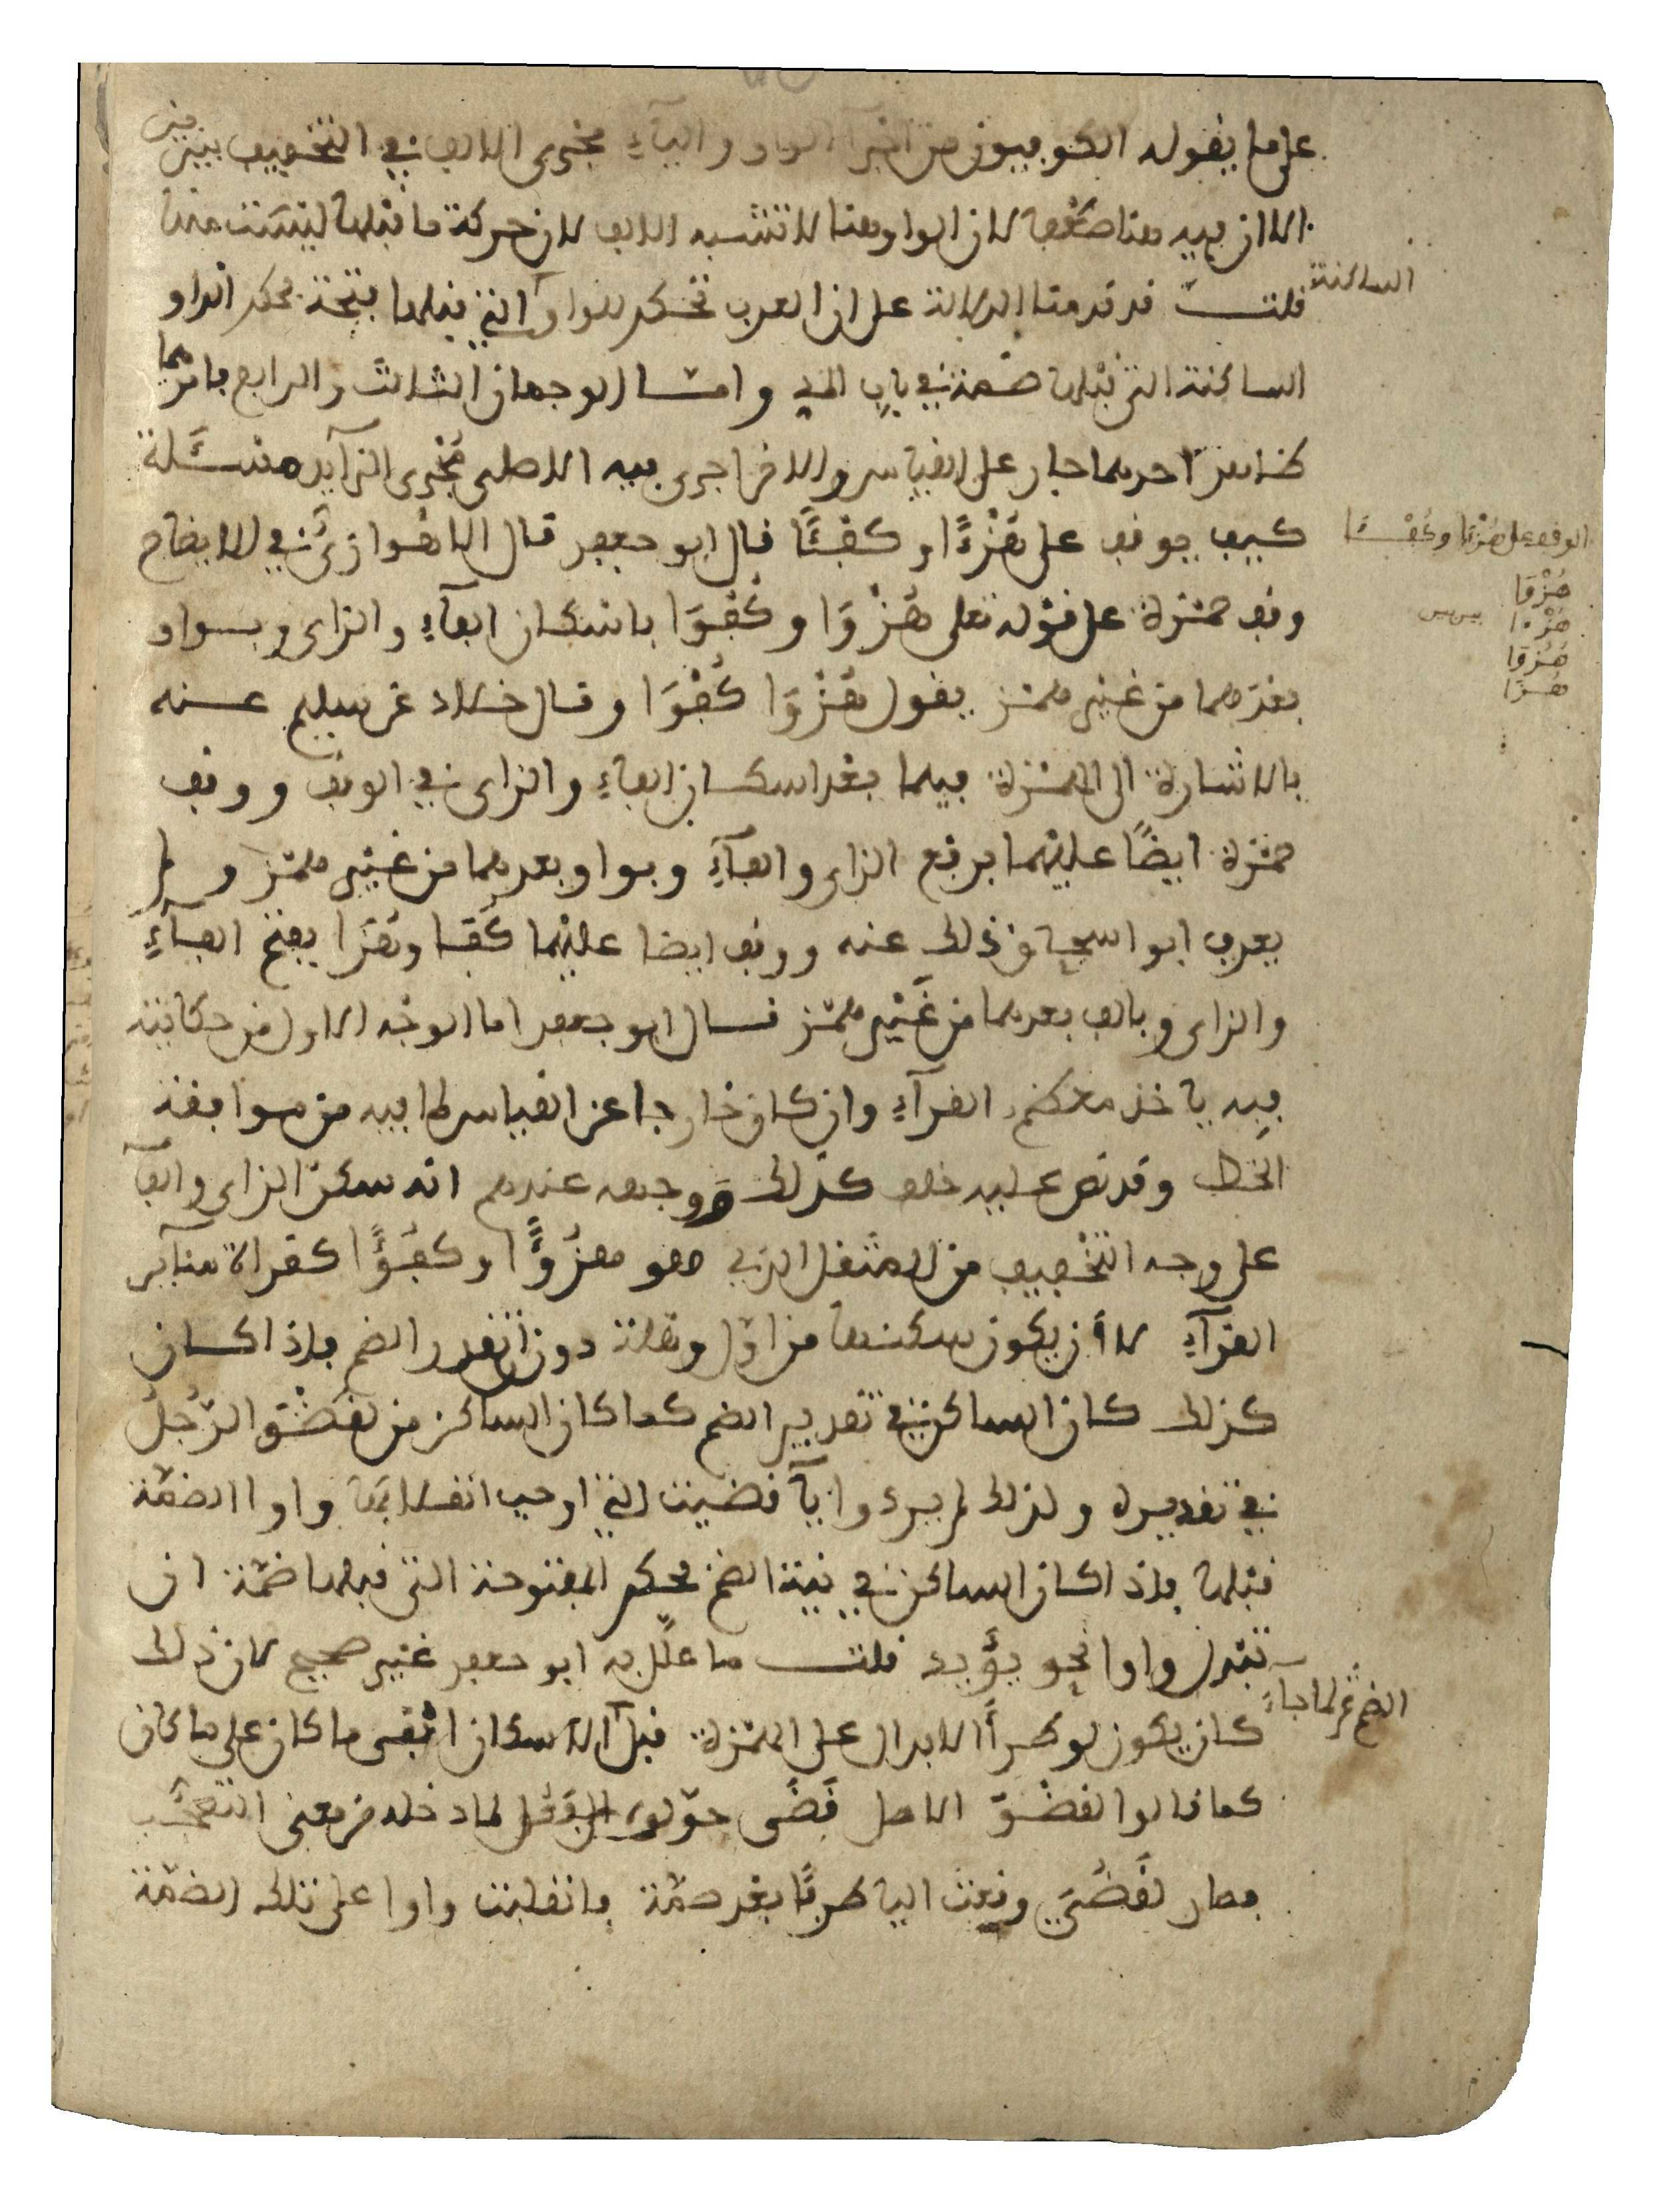 على ما يقوله الكوفيون من اجرآء الواو واليآءِ مجرى الالف في التخفيف بين بين
الا ان فيه هنا ضعفا لان الواو هنا لا تشبه الالف لان حركة ما قبلها ليست منها
قلت قد قدمنا الدلالة على ان العرب تحكم للواو الساكنة التي قبلها فتحة بحكم الواو
الساكنة التي قبلها ضمة في باب المد واما الوجهان الثالث والرابع فانهما
احدهما جار على القياس والاخر اجرى فيه الاصلى مُجْرى الزآيد مسَّلة
كيف يوقف على هُزْءًا وكفْـًٔا قال ابو جعفر قال الاهوازىُّ في الايضاح
وقف حمزة على قوله تعلى هُزْوَا وكُفْوَا باسكان الفآءِ والزاى وبواو
بعدهما من غير همز يقول هُزْوَا كُفْوَا وقال خلاد عن سليم عنه
بالاشارة الى الهمزة فيهما بعد اسكان الفاءِ والزاى في الوقف ووقف
حمزة ايضًا عليهما برفع الزاى والفآءِ وبواو بعدهما من غير همز ولم
يعرف ابو اسحاق ذلك عنه ووقف ايضا عليهما كُفَا وهُزَا بفتح الفآءِ
والزاى وبالف بعدهما من غَيْر همز قال ابو جعفر اما الوجْه الاول من حكايته
فبِه ياخذ معظم القرآءِ وان كان خارجا عن القياس لما فيه من موافقة
الخط وقد نص عليه خلف كذلك ووجهه عندهم انه سكن الزاى والفآ
على وجه التخفيف من المثقل الذي هو هزُؤًا وكفؤًا كقراة سآير
القرآءِ لا أن يكون سكنهما من اول وهلة دون تقدير الضم فاذا كان
كذلك كان الساكن في تقدير الضم كما كان الساكن من لقضْوَ الرَّجُلُ
في تقديره ولذلك لم يردوا يآ قضيت التي اوجب انقلابها واوا الضمّة
قبلها فاذا كان الساكن في نية الضم فحكم المفتوحة التي قبلها ضمّة ان
تبْدل واوا نحو يؤَيد قلت ما علّل به ابو جعفر غير صحيح لان ذلك
كان يكون لو طرأ الابدال على الهمزة قبل الاسكان الضم ثم لما جآءَ ابْقى ما كان على ما كان
كما قالوا لقضْوَ الاصل قَضَى حوّلوا الفعْل لما دخله من معنى التعجُّب
فصار لقَضُيَ وقعت اليا طرفًا بعد ضمّة فانقلبت واوا على تلك الضمّة
الوقف على هُزْءًا وكُفْـًٔا
هُزْوَا
هُزْا بين بين
هُزُوَا
هُزَا